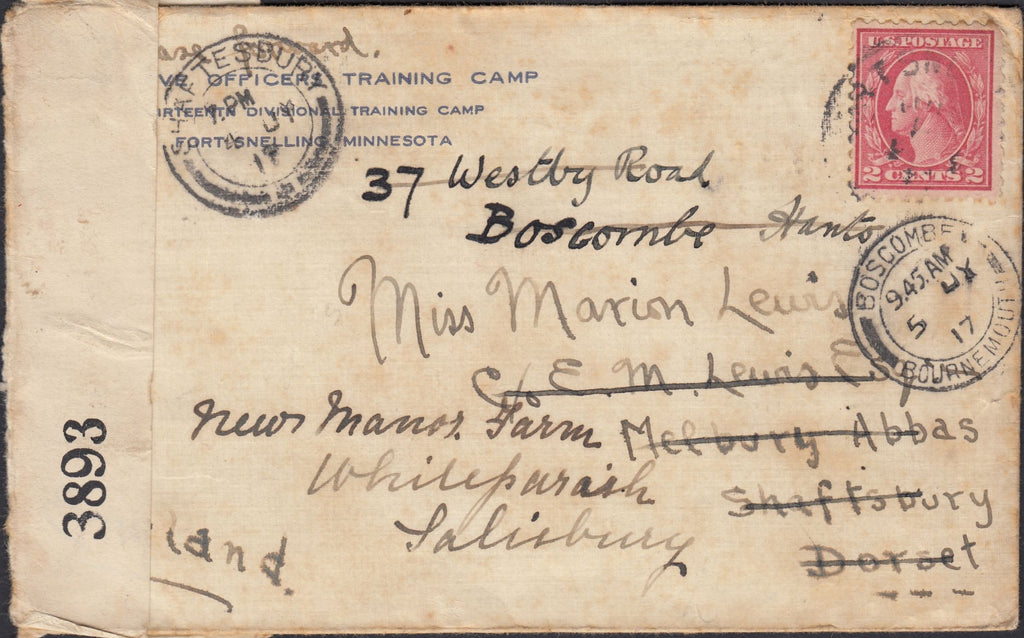 ase forward.
VE OFFICERS TRAINING CAMP
IRTEENTH DIVISIONAL TRAINING CAMP
FORT SNELLING, MINNESOTA
SHAFTESBURY
PM
JY
17
U.S. POSTAGE
2 CENTS 2
37 Westby Road
Boscombe Hants
BOSCOMBE
9.45 AM
5 JY 17
BOURNEMOUTH
Miss Marion Lewis
c/o E. M. Lewis Esq
New Manor Farm Melbury Abbas
Whiteparish Shaftsbury
Salisbury Dorset
land.
3893